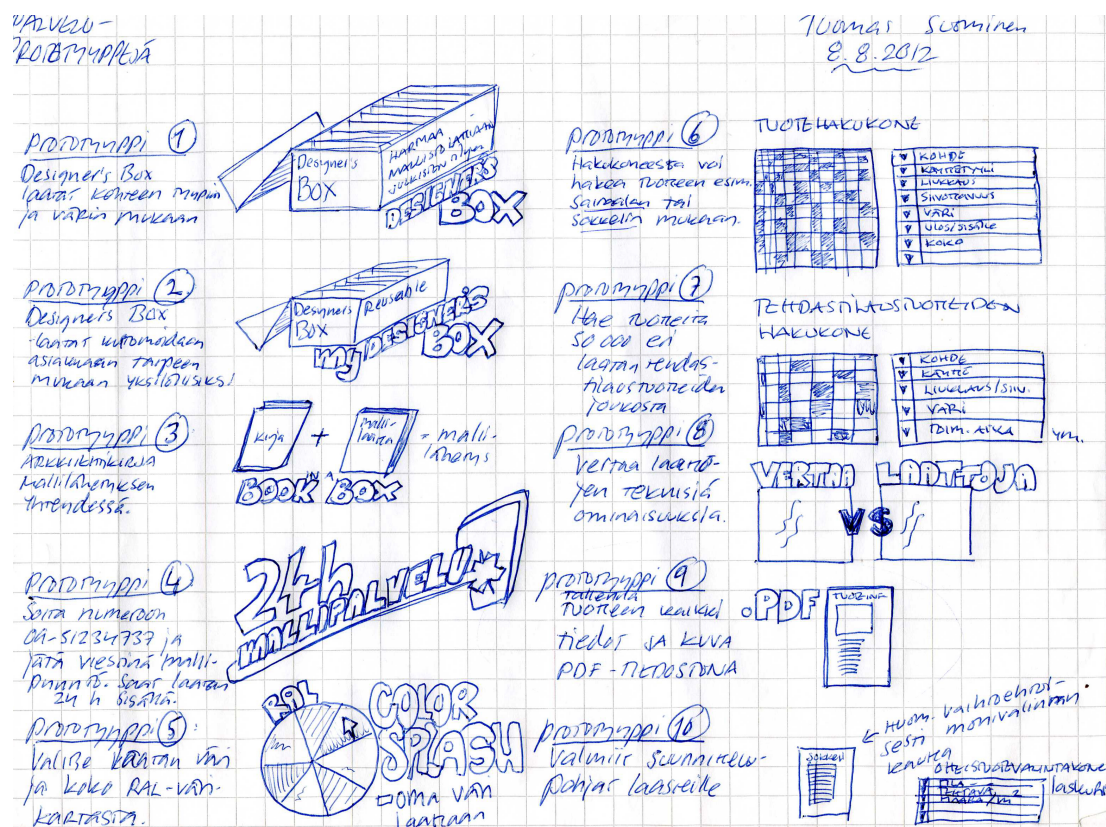 PALVELU-
PROTOTYYPPEJÄ
Tuomas Suominen
8.8.2012
Prototyyppi 1
Designer's Box
laatat kohteen tyypin
ja värin mukaan
Designer's
BOX
HARMAA
JULKISEN TILAN
DESIGNER'S
BOX
Prototyyppi 2
Designer's Box
laatat kustomoidaan
asiakkaan tarpeen
mukaan yksilöllisiksi
Designer's
Box
Reusable
my DESIGNER'S
BOX
Prototyyppi 3
ARKKITEHTIKIRJA
Mallilähetyksen
Yhteydessä.
Kirja
+
malli-
laatta
= malli-
lähetys
BOOK IN A BOX
Prototyyppi 4
Soita numeroon
09-51234737 ja
jätä viestinä malli-
pyyntö. Saat laatan
24 h sisällä.
24h
MALLIPALVELU
Prototyyppi 5:
Valitse laatan väri
ja koko RAL-väri-
kartasta.
RAL
COLOR
SPLASH
OMA väri
laattaan
Prototyyppi 6
Hakukoneesta voi
hakea tuotteen esim.
Sairaalan tai
Sokkelin mukaan.
TUOTEHAKUKONE
KOHDE
KÄYTTÖTYYLI
LIUKKAUS
SIIVOTTAVUUS
VÄRI
ULOS/SISÄLLE
KOKO
Prototyyppi 7
Hae tuotteita
50 000 eri
laatan tehdas-
tilaustuotteiden
joukosta
TEHDASTILAUSTUOTTEIDEN
HAKUKONE
KOHDE
KÄYTTÖ
LIUKKAUS/SIIV.
VÄRI
TOIM. AIKA
ym.
Prototyyppi 8
Vertaa laatto-
jen teknisiä
ominaisuuksia.
VERTAA LAATTOJA
VS
Prototyyppi 9
Tallenna
tuotteen kaikki
tiedot JA KUVA
PDF-TIEDOSTONA
.PDF
TUOTEINF.
Prototyyppi 10
Valmiit suunnittelu-
pohjat laasteille
SOKKELI
← HUOM. vaihtoehtoi-
sesti monivalinnan
kautta
OHEISTUOTEVALINTAKONE
TILA
MÄÄRÄ/m²
laskuri